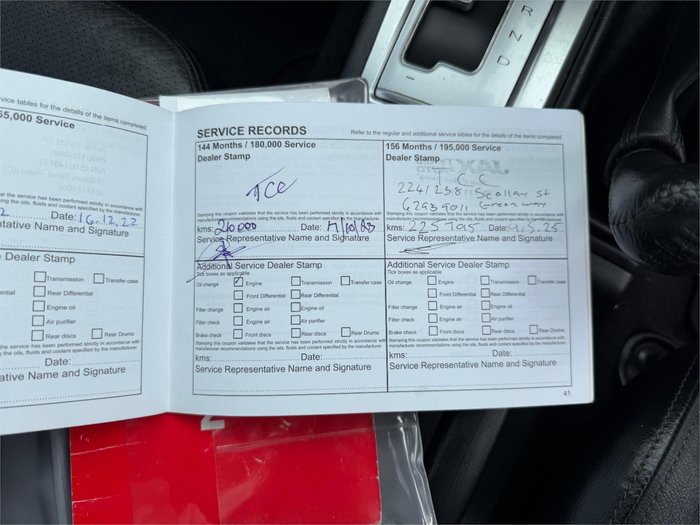 rvice tables for the details of the items completed
65,000 Service
Date: 16.12.22
tative Name and Signature
Dealer Stamp
Transmission
Transfer case
Rear Differential
Engine oil
Air purifier
Rear discs
Rear Drums
Date:
ative Name and Signature
SERVICE RECORDS
Refer to the regular and additional service tables for the details of the items completed
144 Months / 180,000 Service
Dealer Stamp
TCC
Stamping this coupon validates the service has been performed strictly in accordance with
manufacturer recommendations using the oils, fluids and coolant specified by the manufacturer.
kms: 210000 Date:
Service Representative Name and Signature
Additional Service Dealer Stamp
Tick boxes as applicable
Oil change Engine Transmission Transfer case
Front Differential Rear Differential
Filter change Engine air Engine oil
Filter check Engine air Air purifier
Brake check Front discs Rear discs Rear Drums
Stamping this coupon validates the service has been performed strictly in accordance with
manufacturer recommendations using the oils, fluids and coolant specified by the manufacturer.
kms: Date:
Service Representative Name and Signature
156 Months / 195,000 Service
Dealer Stamp
Scollay St
62939011 Greenway
Stamping this coupon validates the service has been performed strictly in accordance with
manufacturer recommendations using the oils, fluids and coolant specified by the manufacturer.
kms: 225795 Date: .5.25
Service Representative Name and Signature
Additional Service Dealer Stamp
Tick boxes as applicable
Oil change Engine Transmission Transfer case
Front Differential Rear Differential
Filter change Engine air Engine oil
Filter check Engine air Air purifier
Brake check Front discs Rear discs Rear Drums
Stamping this coupon validates the service has been performed strictly in accordance with
manufacturer recommendations using the oils, fluids and coolant specified by the manufacturer.
kms: Date:
Service Representative Name and Signature
41
R
N
D